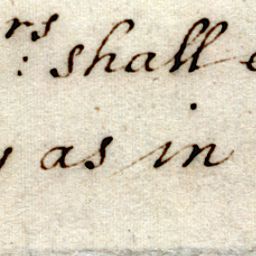 rs: shall
as in